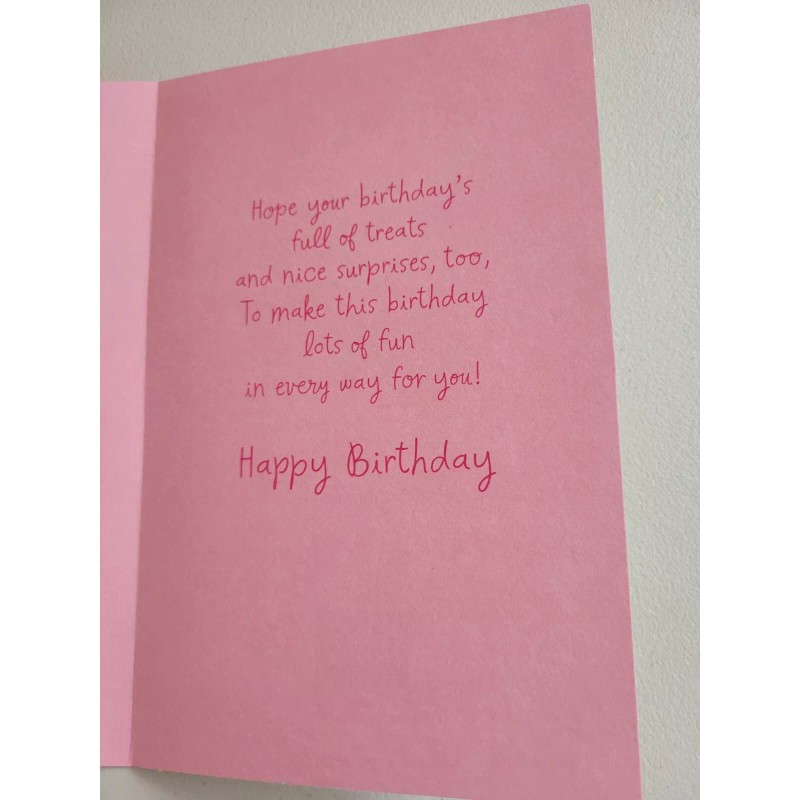 Hope your birthday's
full of treats
and nice surprises, too,
To make this birthday
lots of fun
in every way for you!
Happy Birthday